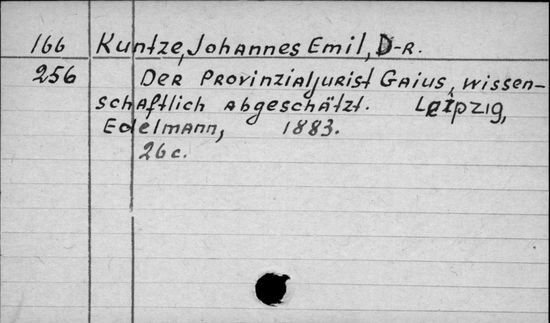 166 Kuntze, Johannes Emil, D-r.
256 Der Provinzialjurist Gaius, wissen-
schaftlich abgeschätzt. Leipzig,
Edelmann, 1883.
26 c.